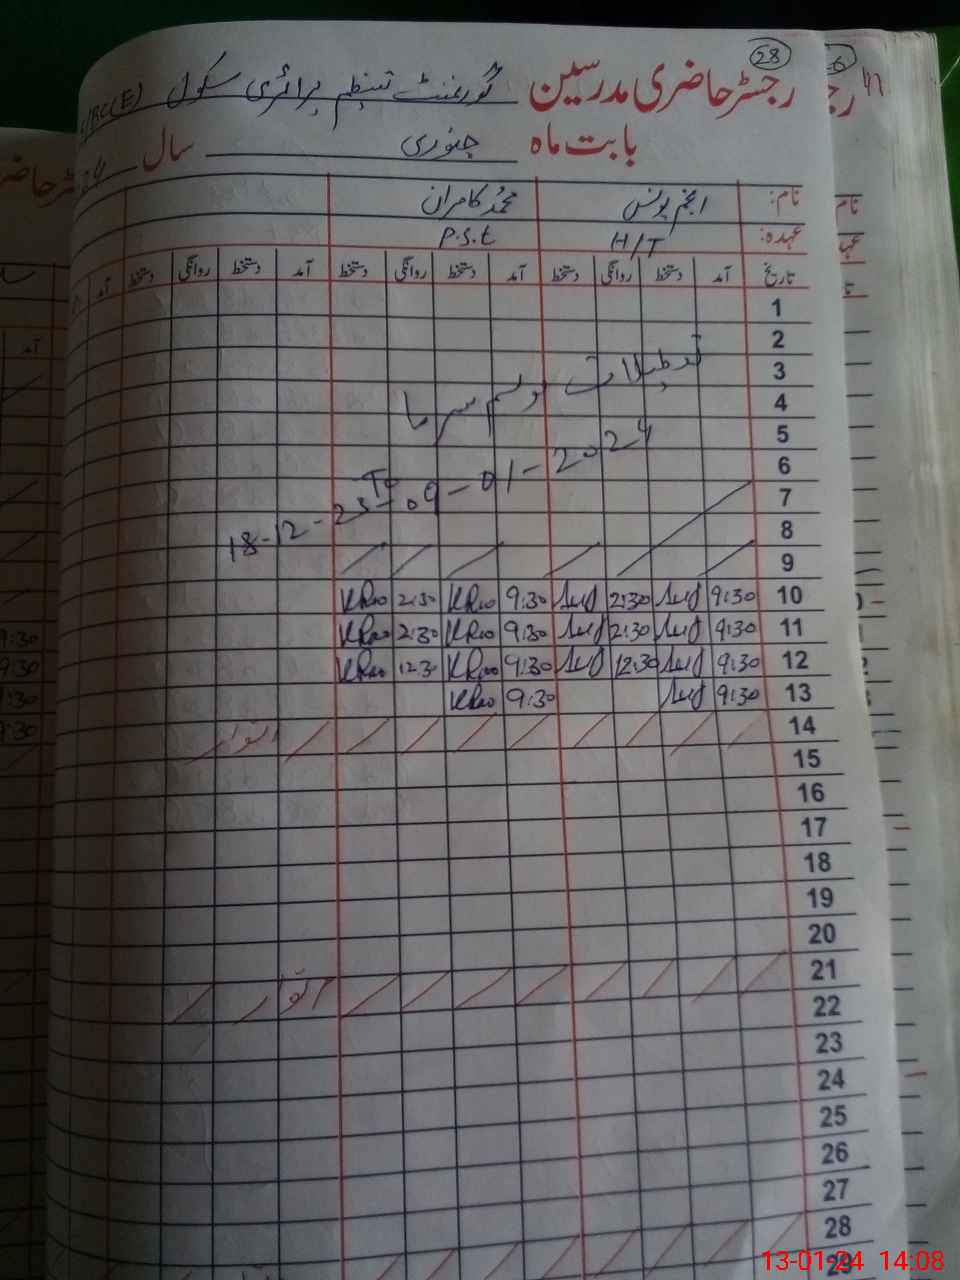 28
رجسٹر حاضری مدرسین گورنمنٹ تنظیم پرائمری سکول /BC(E)
بابت ماہ جنوری سال
نام: انجم یونس محمد کامران
عہدہ: H/T P.S.t
تاریخ آمد دستخط روانگی دستخط آمد دستخط روانگی دستخط آمد دستخط روانگی دستخط آمد
1
2
3
تعطیلات موسم سرما
4
5
6
18-12-23 To 09-01-2024
7
8
9
10 9:30 2:30 9:30 2:30
11 9:30 2:30 9:30 2:30
12 9:30 12:30 9:30 12:30
13 9:30 9:30
14 اتوار
15
16
17
18
19
20
21
22
23
24
25
26
27
28
29
13-01-24 14:08